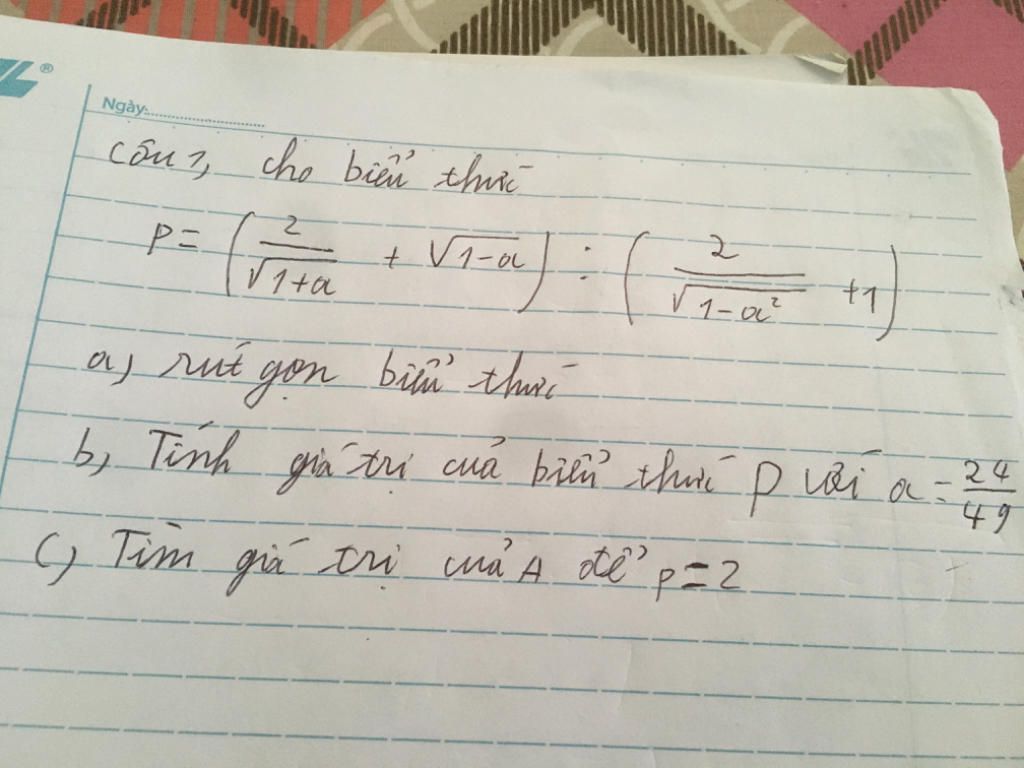 Ngày:
Câu 1, cho biểu thức
P = ( 2/√(1+a) + √(1-a) ) : ( 2/√(1-a²) +1 )
a, rút gọn biểu thức
b, Tính giá trị của biểu thức P với a = 24/49
c, Tìm giá trị của A để P = 2